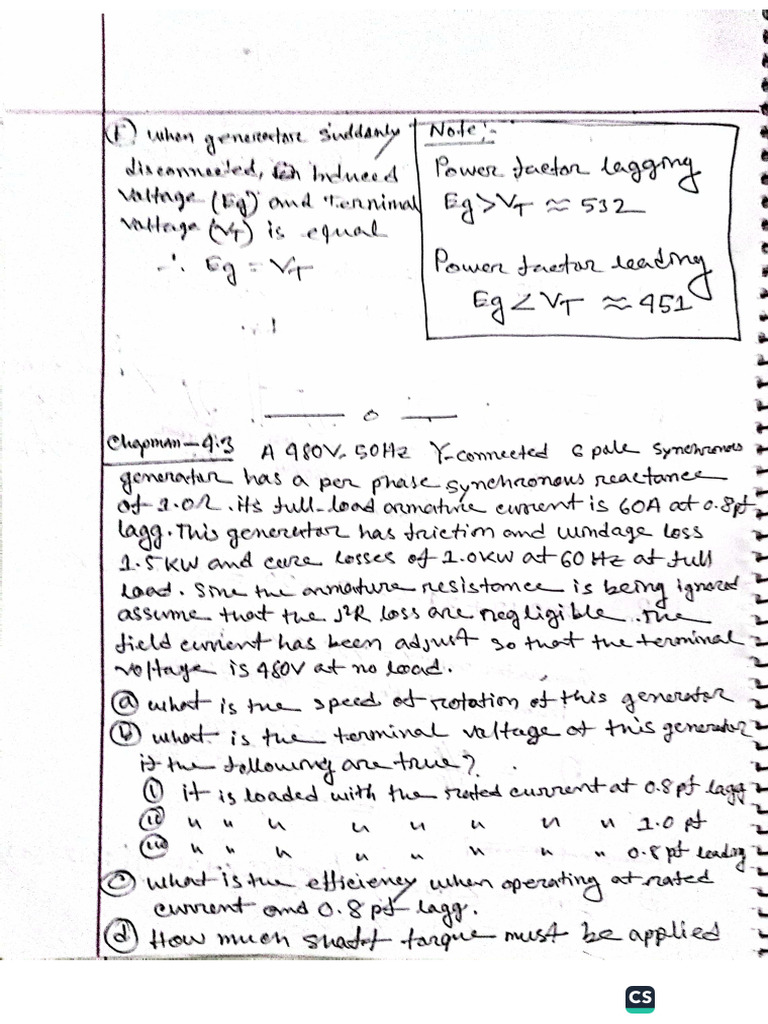 (f) when generatore suddanly
disconnected, induced
voltage (Eg) and terminal
voltage (VT) is equal
∴ Eg = VT
Note:-
Power factor lagging
Eg > VT ≈ 532
Power factor leading
Eg < VT ≈ 451
Chapman-4:3 A 480V. 50Hz Y-connected 6 pale synchronous
generator has a per phase synchronous reactance
of 1.0Ω. its full-load armature current is 60A at 0.8pf
lagg. This generator has friction and windage loss
1.5 KW and core losses of 1.0KW at 60 Hz at full
load. Sine the armature resistance is being ignored
assume that the I²R loss are negligible. The
field current has been adjust so that the terminal
voltage is 480V at no load.
(a) what is the speed of rotation of this generator
(b) what is the terminal voltage of this generator
if the following are true?
(i) it is loaded with the rated current at 0.8pf lagg
(ii) " " " " " " " " 1.0 pf
(iii) " " " " " " " " 0.8pf leading
(c) what is the efficiency when operating at rated
current and 0.8 pf lagg.
(d) How much shaft torque must be applied
CS